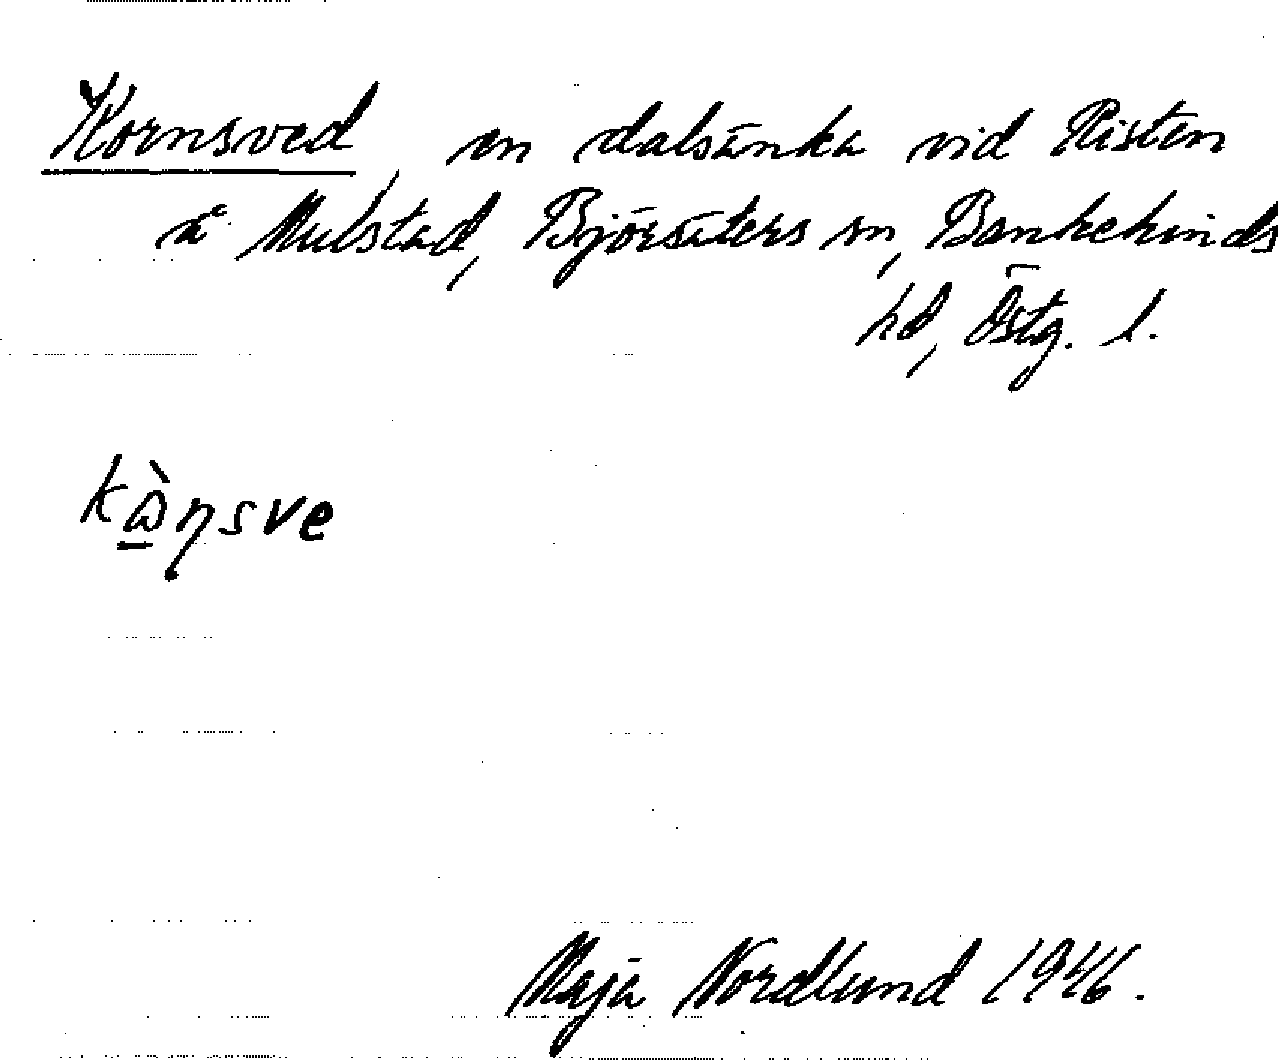 Kornsved, en dalsänka vid Risten
å Mulstad, Björsäters sn, Bankekinds
hd, Östg. l.
kɷ̀ṇsve
Maja Nordlund 1946.